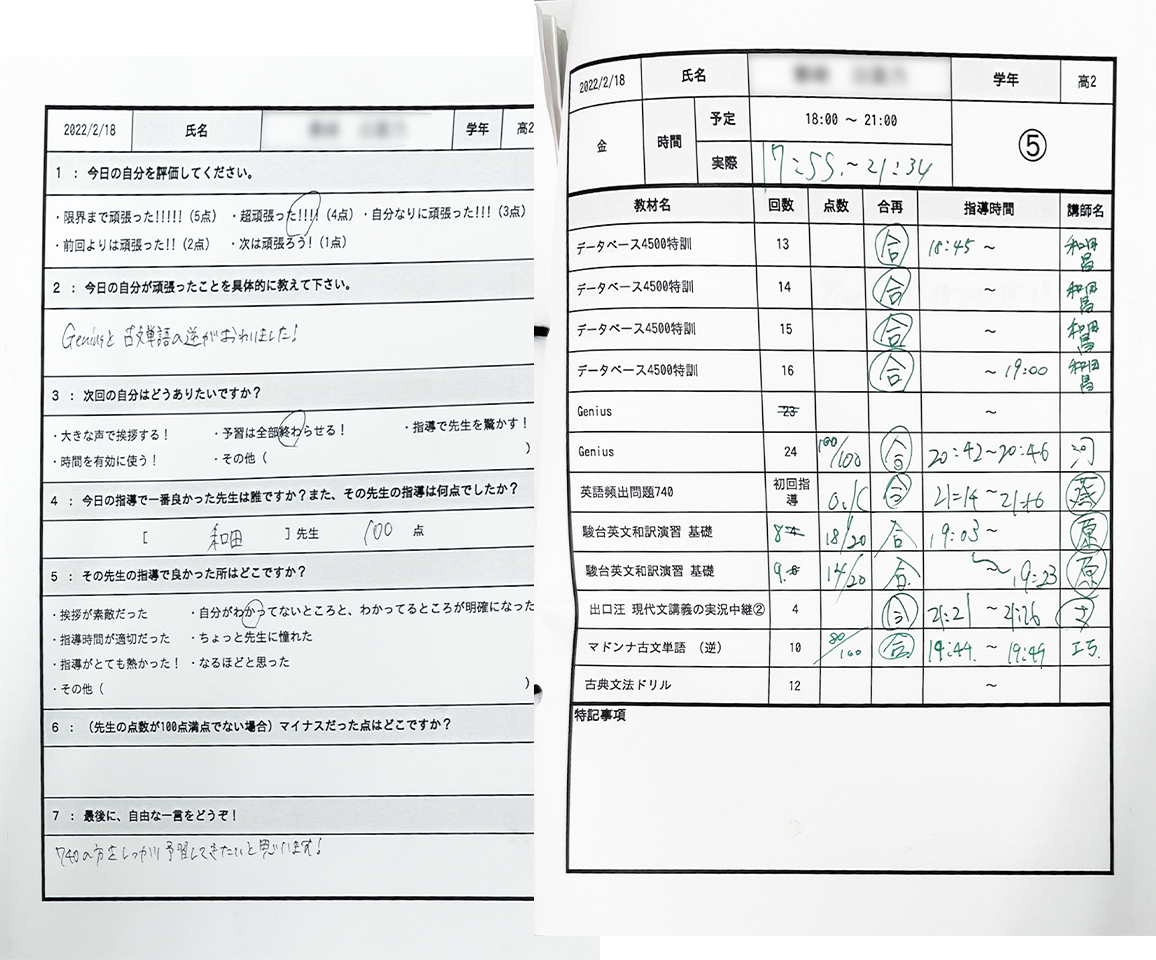 2022/2/18 氏名 学年 高2
1 : 今日の自分を評価してください。
・限界まで頑張った!!!!!(5点) ・超頑張った!!!!(4点) ・自分なりに頑張った!!!(3点)
・前回よりは頑張った!!(2点) ・次は頑張ろう!(1点)
2 : 今日の自分が頑張ったことを具体的に教えて下さい。
Geniusと古文単語の逆がおわりました!
3 : 次回の自分はどうありたいですか?
・大きな声で挨拶する! ・予習は全部終わらせる! ・指導で先生を驚かす!
・時間を有効に使う! ・その他( )
4 : 今日の指導で一番良かった先生は誰ですか?また、その先生の指導は何点でしたか?
[ 和田 ]先生 100 点
5 : その先生の指導で良かった所はどこですか?
・挨拶が素敵だった ・自分がわかってないところと、わかってるところが明確になった
・指導時間が適切だった ・ちょっと先生に憧れた
・指導がとても熱かった! ・なるほどと思った
・その他( )
6 : (先生の点数が100点満点でない場合)マイナスだった点はどこですか?
7 : 最後に、自由な一言をどうぞ!
740の方をしっかり予習してきたいと思います!
2022/2/18 氏名 学年 高2
金 時間 予定 18:00 ~ 21:00 ⑤
実際 17:55.~21:34
教材名 回数 点数 合再 指導時間 講師名
データベース4500特訓 13 合 18:45 ~ 和田昌
データベース4500特訓 14 合 ~ 和田昌
データベース4500特訓 15 合 ~ 和田昌
データベース4500特訓 16 合 ~ 19:00 和田昌
Genius 23 ~
Genius 24 100/100 合 20:42~20:46 河
英語頻出問題740 初回指導 合 21:14 ~ 21:16
駿台英文和訳演習 基礎 8 18/20 合 19:03 ~ 原
駿台英文和訳演習 基礎 9 14/20 合 ~ 19:23 原
出口汪 現代文講義の実況中継② 4 合 21:21 ~ 21:26
マドンナ古文単語 (逆) 10 80/100 合 19:44. ~ 19:49
古典文法ドリル 12 ~
特記事項